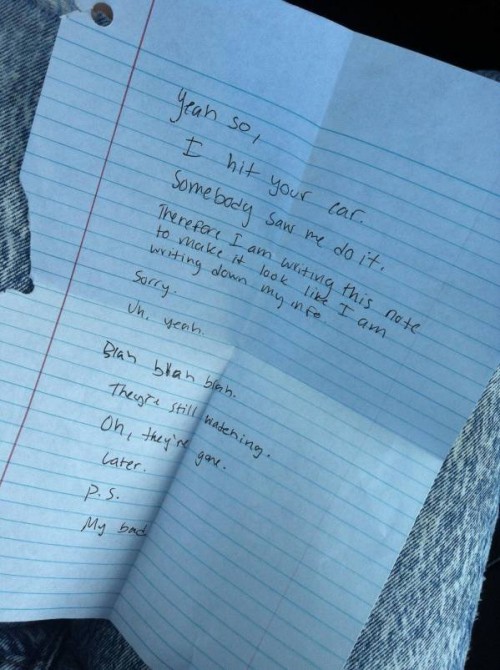 Yeah so,
I hit your car.
Somebody saw me do it.
Therefore I am writing this note
to make it look like I am
writing down my info.
Sorry.
Uh, yeah.
Blah blah blah.
They're still watching.
Oh, they're gone.
Later.
P.S.
My bad